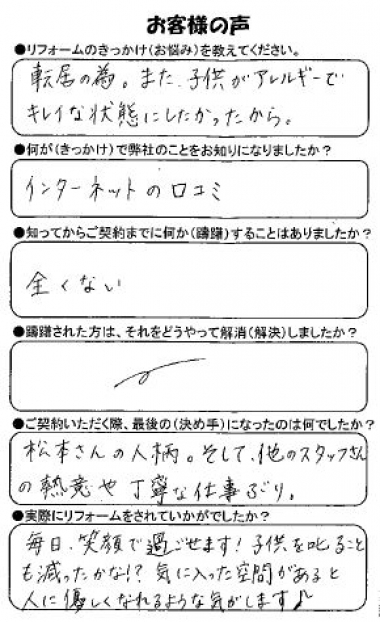 お客様の声
●リフォームのきっかけ(お悩み)を教えてください。
転居の為。また、子供がアレルギーで
キレイな状態にしたかったから。
●何が(きっかけ)で弊社のことをお知りになりましたか？
インターネットの口コミ
●知ってからご契約までに何か(躊躇)することはありましたか？
全くない
●躊躇された方は、それをどうやって解消(解決)しましたか？
●ご契約いただく際、最後の(決め手)になったのは何でしたか？
松本さんの人柄。そして、他のスタッフさん
の熱意や丁寧な仕事ぶり。
●実際にリフォームをされていかがでしたか？
毎日、笑顔で過ごせます！子供を叱ること
も減ったかな!? 気に入った空間があると
人に優しくなれるような気がします♪